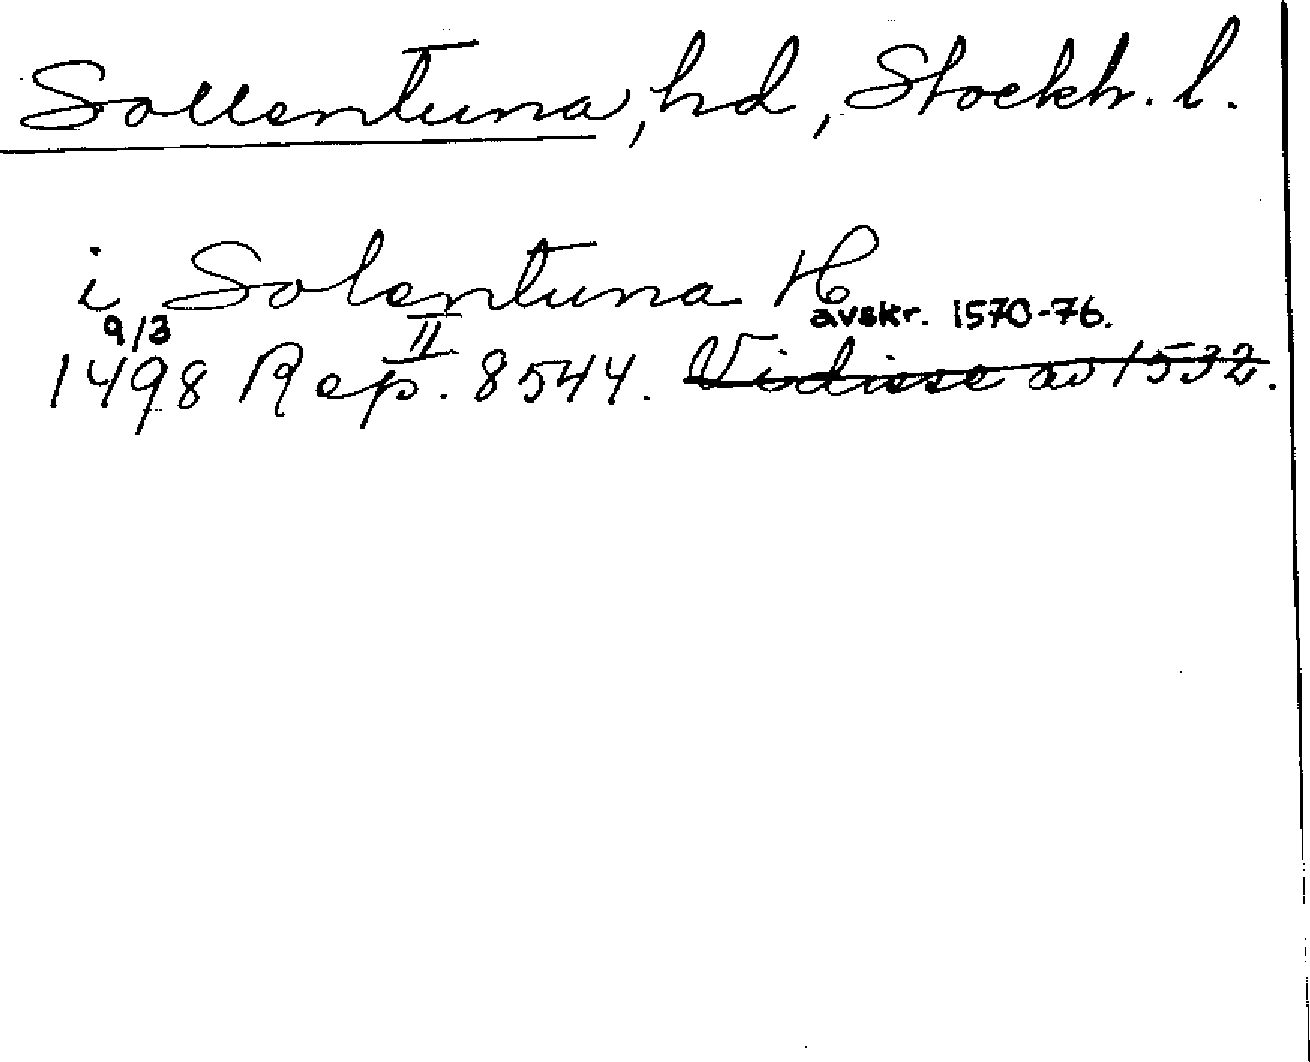 Sollentuna, hd, Stockh. l.
i Solentuna H
avskr. 1570-76.
9/3 II
1498 Rep. 8544. Vidisse av 1532.